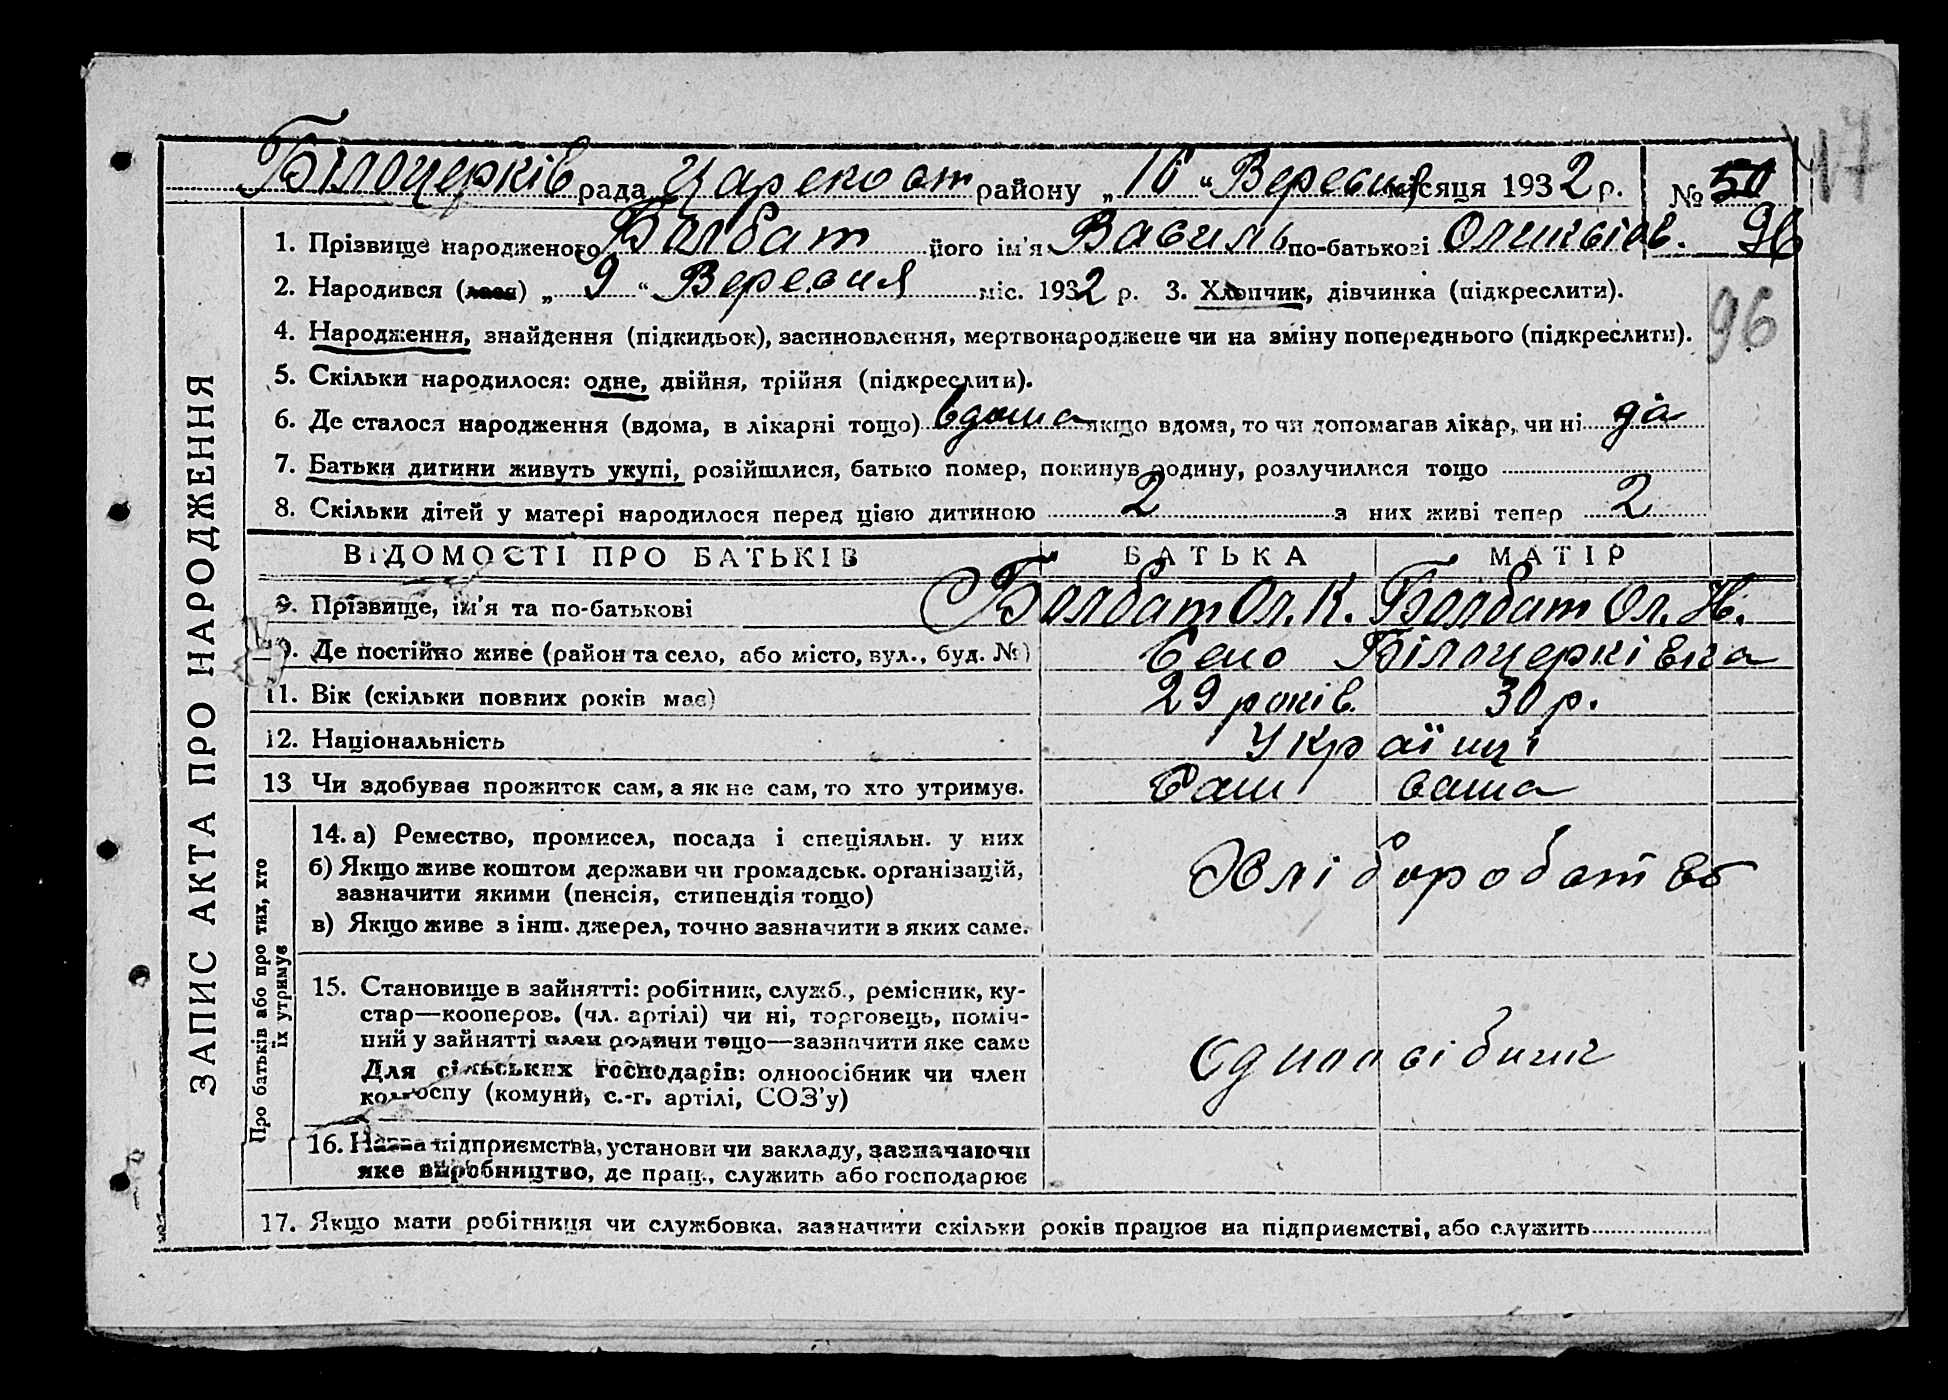 47
Білоцерків рада Царекост району „ 16 “ Вересня місяця 1932 р. № 50
1. Прізвище народженого Болбат його ім'я Василь по-батькові Олексіїв. 96
2. Народився (лася) „ 9 “ Вересня міс. 1932 р. 3. Хлопчик, дівчинка (підкреслити).
96
4. Народження, знайдення (підкидьок), засиновлення, мертвонароджене чи на зміну попереднього (підкреслити).
5. Скільки народилося: одне, двійня, трійня (підкреслити).
6. Де сталося народження (вдома, в лікарні тощо) вдома якщо вдома, то чи допомагав лікар, чи ні да
7. Батьки дитини живуть укупі, розійшлися, батько помер, покинув родину, розлучилися тощо
8. Скільки дітей у матері народилося перед цією дитиною 2 з них живі тепер 2
ВІДОМОСТІ ПРО БАТЬКІВ БАТЬКА МАТІР
9. Прізвище, ім'я та по-батькові Болбат Ол. К. Болбат Ол. Н.
10. Де постійно живе (район та село, або місто, вул., буд. №) Село Білоцерківка
11. Вік (скільки повних років має) 29 років. 30 р.
12. Національність Українці
13 Чи здобуває прожиток сам, а як не сам, то хто утримує. Сам сама
14. а) Ремество, промисел, посада і спеціяльн. у них
б) Якщо живе коштом держави чи громадськ. організацій,
зазначити якими (пенсія, стипендія тощо)
Хліборобство
в) Якщо живе з інш. джерел, точно зазначити з яких саме.
15. Становище в зайнятті: робітник, служб., ремісник, ку-
стар—кооперов. (чл. артілі) чи ні, торговець, поміч-
ний у зайнятті член родини тощо—зазначити яке саме
Одноосібник
Для сільських господарів: одноосібник чи член
колгоспу (комуни, с.-г. артілі, СОЗ'у)
16. Назва підприємства, установи чи закладу, зазначаючи
яке виробництво, де прац., служить або господарює
17. Якщо мати робітниця чи службовка, зазначити скільки років працює на підприємстві, або служить
ЗАПИС АКТА ПРО НАРОДЖЕННЯ
Про батьків або про тих, хто
їх утримує